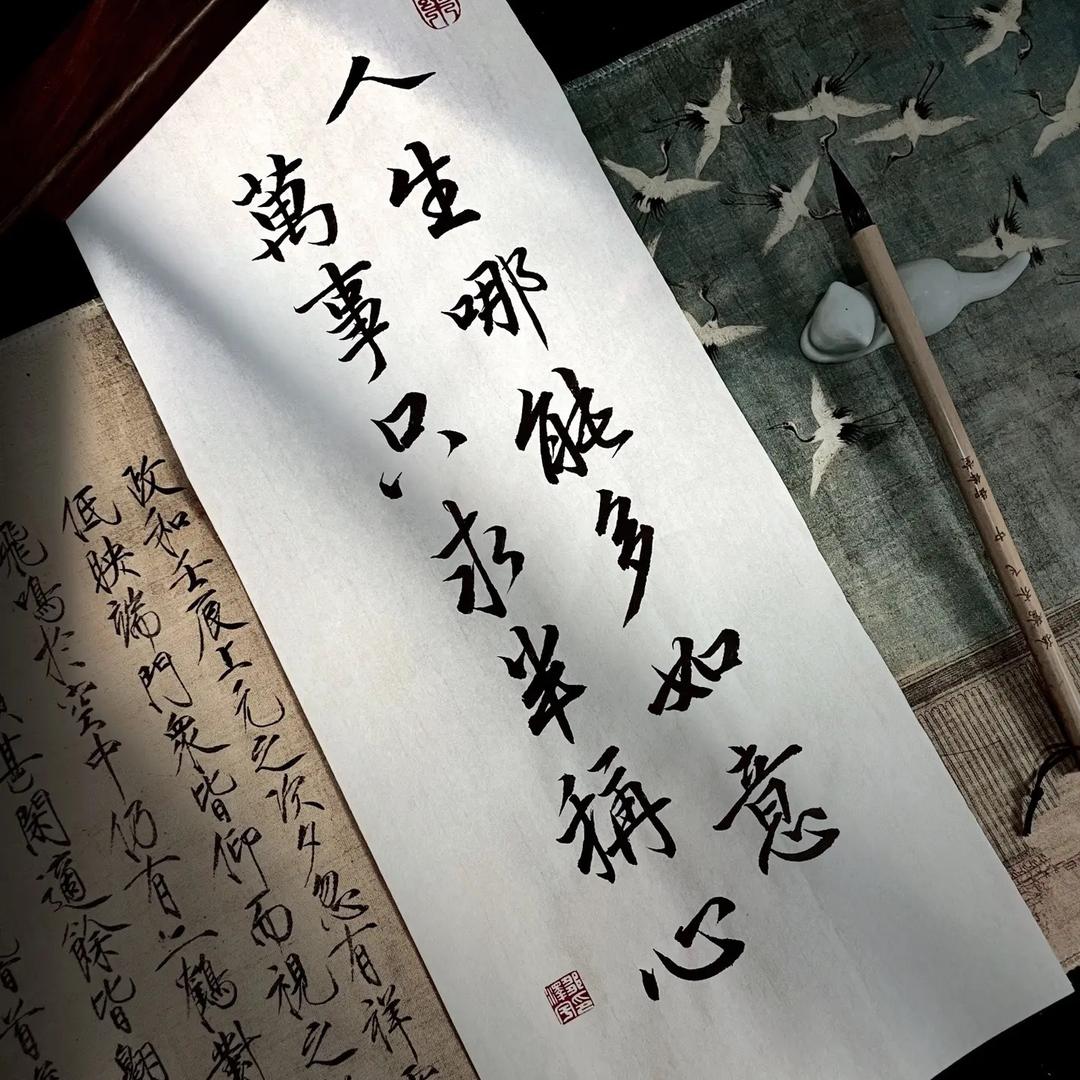 人生哪能多如意
萬事只求半稱心
政和壬辰上元之次夕忽有祥
低映端門衆皆仰而視之
飛鳴於空中仍有二鶴對
甚閑適餘皆翺